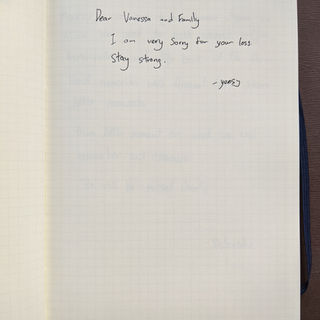 Dear Vanessa and Family
I am very sorry for your loss
Stay strong.